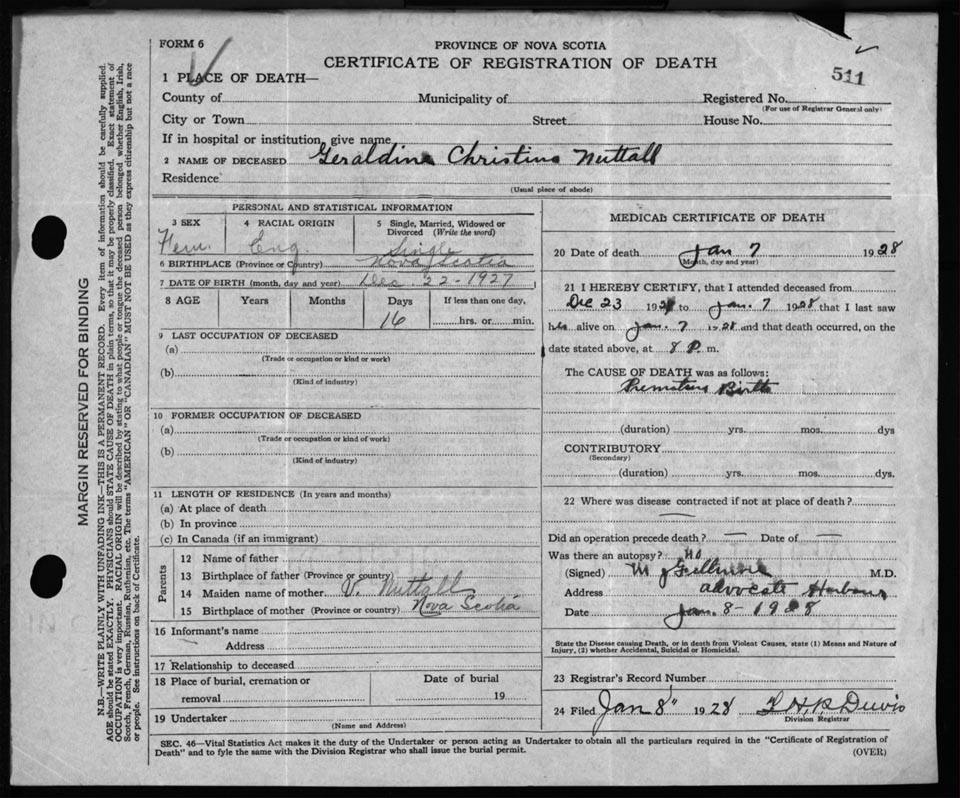 FORM 6
PROVINCE OF NOVA SCOTIA
CERTIFICATE OF REGISTRATION OF DEATH
511
1 PLACE OF DEATH—
County of Municipality of Registered No.
(For use of Registrar General only)
City or Town Street House No.
If in hospital or institution, give name
2 NAME OF DECEASED Geraldine Christina Nuttall
Residence
(Usual place of abode)
PERSONAL AND STATISTICAL INFORMATION
3 SEX 4 RACIAL ORIGIN 5 Single, Married, Widowed or Divorced (Write the word)
Fem. Eng Single
6 BIRTHPLACE (Province or Country) Nova Scotia
7 DATE OF BIRTH (month, day and year) Dec. 22-1927
8 AGE Years Months Days If less than one day,
16 hrs. or min.
9 LAST OCCUPATION OF DECEASED
(a)
(Trade or occupation or kind or work)
(b)
(Kind of industry)
10 FORMER OCCUPATION OF DECEASED
(a)
(Trade or occupation or kind of work)
(b)
(Kind of industry)
11 LENGTH OF RESIDENCE (In years and months)
(a) At place of death
(b) In province
(c) In Canada (if an immigrant)
Parents
12 Name of father
13 Birthplace of father (Province or country)
14 Maiden name of mother V. Nuttall
15 Birthplace of mother (Province or country) Nova Scotia
16 Informant's name
Address
17 Relationship to deceased
18 Place of burial, cremation or Date of burial
removal 19
19 Undertaker
(Name and Address)
MEDICAL CERTIFICATE OF DEATH
20 Date of death Jan 7 1928
(Month, day and year)
21 I HEREBY CERTIFY, that I attended deceased from
Dec 23 192 to Jan. 7 1928 that I last saw
alive on Jan. 7 1928 and that death occurred, on the
date stated above, at 8 P. m.
The CAUSE OF DEATH was as follows:
Premature Birth
(duration) yrs. mos. dys
CONTRIBUTORY
(Secondary)
(duration) yrs. mos. dys.
22 Where was disease contracted if not at place of death?
Did an operation precede death? — Date of —
Was there an autopsy? no
(Signed) M J M.D.
Address Advocate Harbour
Date Jan. 8-1928
State the Disease causing Death, or in death from Violent Causes, state (1) Means and Nature of
Injury, (2) whether Accidental, Suicidal or Homicidal.
23 Registrar's Record Number
24 Filed Jan 8 1928
Division Registrar
SEC. 46—Vital Statistics Act makes it the duty of the Undertaker or person acting as Undertaker to obtain all the particulars required in the "Certificate of Registration of
Death" and to fyle the same with the Division Registrar who shall issue the burial permit. (OVER)
MARGIN RESERVED FOR BINDING
N.B.—WRITE PLAINLY WITH UNFADING INK—THIS IS A PERMANENT RECORD. Every item of information should be carefully supplied.
AGE should be stated EXACTLY. PHYSICIANS should STATE CAUSE OF DEATH in plain terms, so that it may be properly classified. Exact statement of
OCCUPATION is very important. RACIAL ORIGIN will be described by stating to what people or tongue the deceased person belonged, whether English, Irish,
Scotch, French, German, Russian, Ruthenian, etc. The terms "AMERICAN" OR "CANADIAN" MUST NOT BE USED as they express citizenship but not a race
or people. See instructions on back of Certificate.